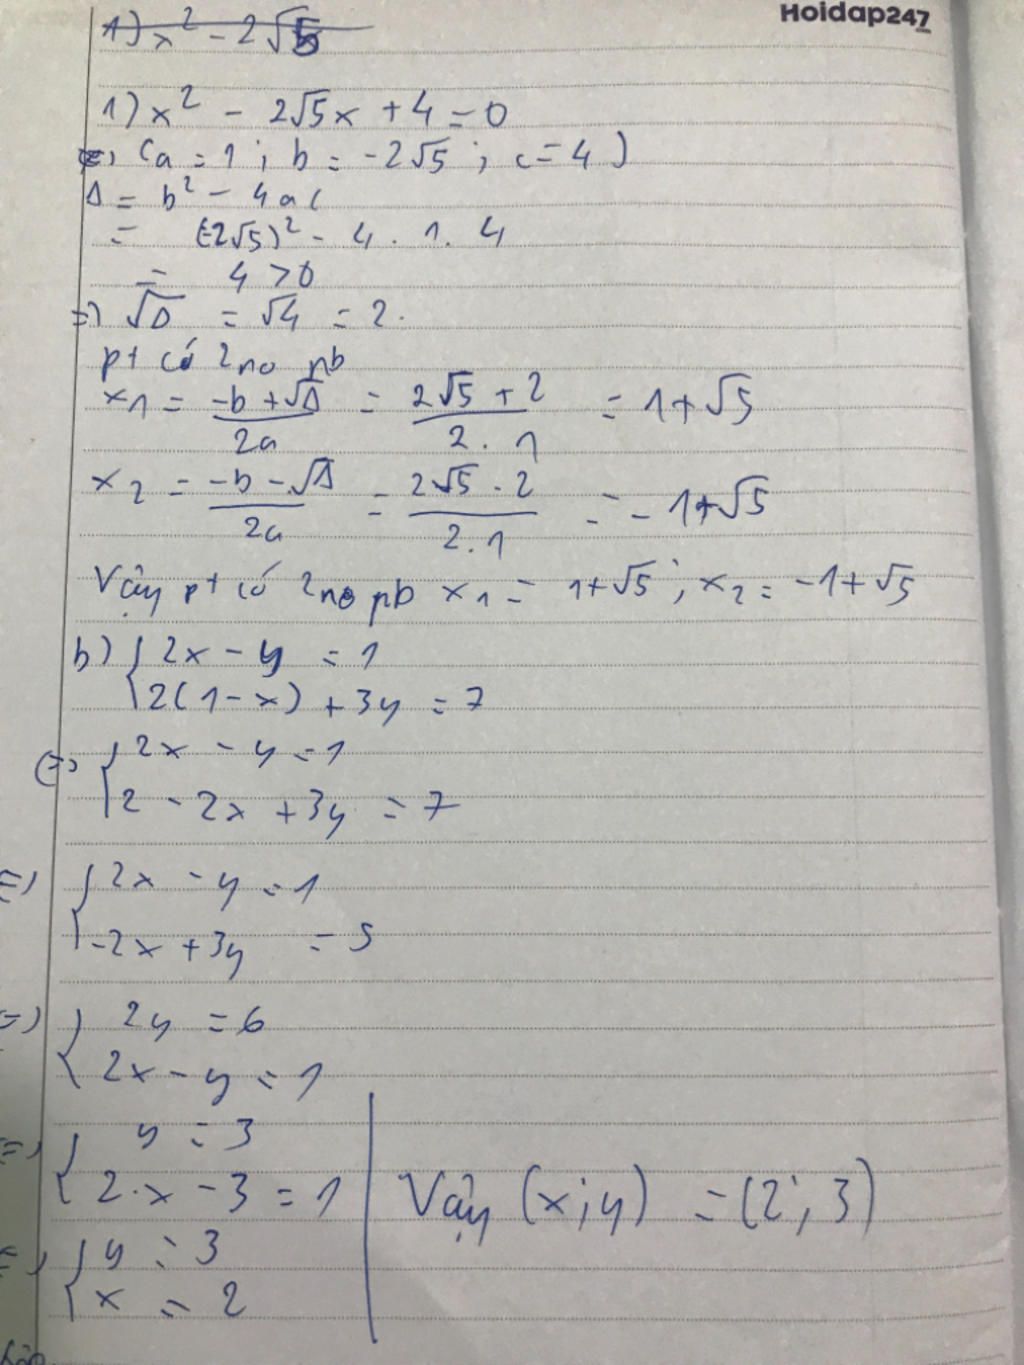 Hoidap247
1) x² - 2√5
1) x² - 2√5x + 4 = 0
(a = 1 ; b = -2√5 ; c = 4)
Δ = b² - 4ac
= (-2√5)² - 4 . 1 . 4
= 4 > 0
=> √Δ = √4 = 2.
pt có 2no pb
x1 = (-b + √Δ)/2a = (2√5 + 2)/(2 . 1) = 1 + √5
x2 = (-b - √Δ)/2a = (2√5 - 2)/(2 . 1) = -1 + √5
Vậy pt có 2no pb x1 = 1 + √5 ; x2 = -1 + √5
b) { 2x - y = 1
2(1 - x) + 3y = 7
(=> { 2x - y = 1
2 - 2x + 3y = 7
=) { 2x - y = 1
-2x + 3y = 5
=) { 2y = 6
2x - y = 1
=) { y = 3
2.x - 3 = 1
=) { y = 3
x = 2
Vậy (x;y) = (2; 3)